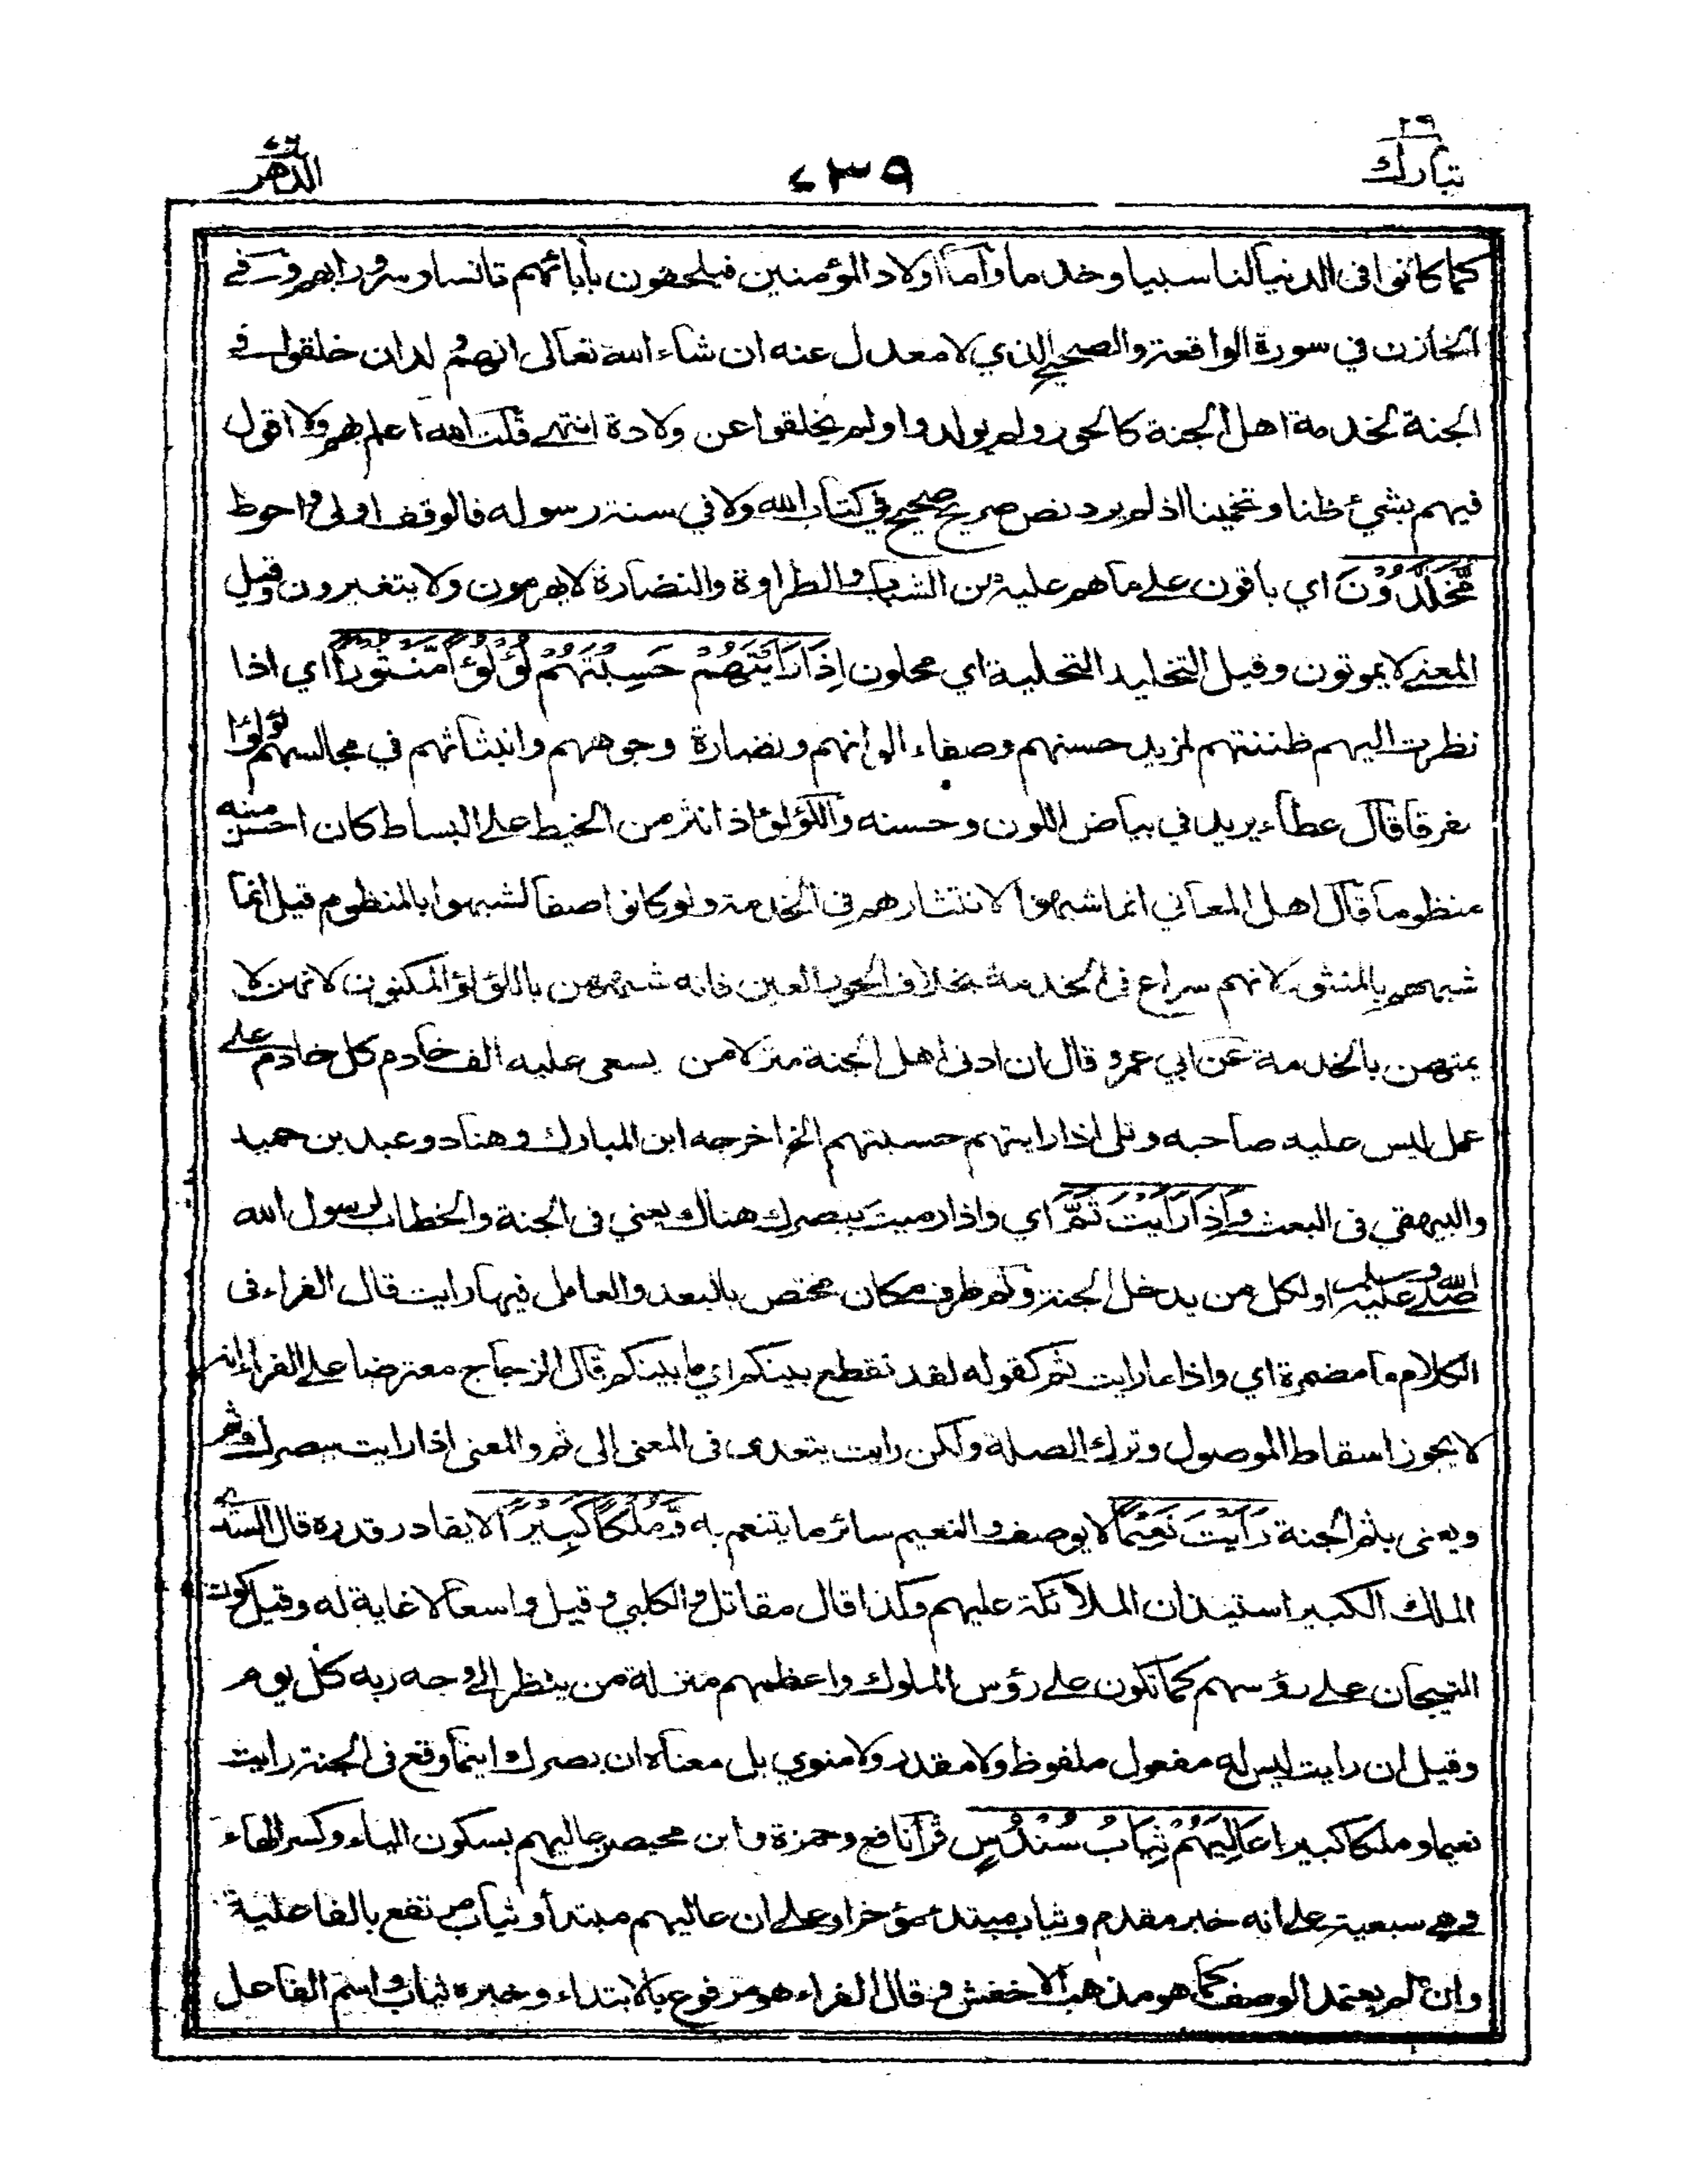 تبارك ٢٩
٢٣٩
الدهر ٧٦
كما كانوا فى الدنيا لنا سبيا وخدما وأما اولاد المؤمنين فيلحقون بآبائهم تانسا وسرورا بهم وفي
الخازن في سورة الواقعة والصحيح الذي لا معدل عنه ان شاء الله تعالى انهم ولدان خلقوا في
الجنة لخدمة اهل الجنة كالحور ولم يولدوا ولم يخلقوا عن ولادة انتهى قلت الله اعلم بهم ولا اقول
فيهم بشيء ظنا وتخمينا اذ لم يرد نص صريح صحيح في كتاب الله ولا في سنة رسوله فالوقف اولى واحوط
مُّخَلَّدُوْنَ اي باقون على ما هم عليه من الشباب والطراوة والنضارة لا يهرمون ولا يتغيرون وقيل
المعنى لا يموتون وقيل التخليد التحلية اي محلون اِذَا رَاَيْتَهُمْ حَسِبْتَهُمْ لُؤْلُؤًا مَّنْثُوْرًا اي اذا
نظرت اليهم ظننتهم لمزيد حسنهم وصفاء الوانهم ونضارة وجوههم وانبثاثهم في مجالسهم لؤلؤا
مفرقا قال عطاء يريد في بياض اللون وحسنه واللؤلؤ اذا نثر من الخيط على البساط كان احسن منه
منظوما قال اهل المعاني انما شبهوا لانتثارهم فى الخدمة ولو كانوا صفا لشبهوا بالمنظوم قيل انما
شبههم بالمنثور لانهم سراع فى الخدمة بخلاف الحور العين فانه شبههن باللؤلؤ المكنون لانهن لا
يمتهن بالخدمة عن ابي عمرو قال ان ادنى اهل الجنة منزلا من يسعى عليه الف خادم كل خادم على
عمل ليس عليه صاحبه وتلى اذا رايتهم حسبتهم الخ اخرجه ابن المبارك وهناد وعبد بن حميد
والبيهقي فى البعث وَاِذَا رَاَيْتَ ثَمَّ اي واذا رميت ببصرك هناك يعني فى الجنة والخطاب لرسول الله
صلى الله عليه وسلم او لكل من يدخل الجنة وثم ظرف مكان مختص بالبعد والعامل فيها رايت قال الفراء فى
الكلام ما مضمرة اي واذا ما رايت ثم كقوله لقد تقطع بينكم اي ما بينكم قال الزجاج معترضا على الفراء انه
لا يجوز اسقاط الموصول وترك الصلة ولكن رايت يتعدى فى المعنى الى ثم والمعنى اذا رايت ببصرك ثم
ويعنى بثم الجنة رَاَيْتَ نَعِيْمًا لا يوصف والنعيم سائر ما يتنعم به وَّمُلْكًا كَبِيْرًا لا يقادر قدره قال السدي
الملك الكبير استيذان الملائكة عليهم وكذا قال مقاتل والكلبي وقيل واسعا لا غاية له وقيل كون
التيجان على رؤسهم كما تكون على رؤس الملوك واعظمهم منزلة من ينظر الى وجه ربه كل يوم
وقيل ان رايت ليس له مفعول ملفوظ ولا مقدر ولا منوي بل معناه ان بصرك اينما وقع فى الجنة رايت
نعيما وملكا كبيرا عَالِيَهُمْ ثِيَابُ سُنْدُسٍ قرأ نافع وحمزة وابن محيصن عاليهم بسكون الياء وكسر الهاء
وهي سبعية على انه خبر مقدم وثياب مبتدء مؤخر او على ان عاليهم مبتدأ وثياب مرتفع بالفاعلية
وان لم يعتمد الوصف كما هو مذهب الاخفش وقال الفراء هو مرفوع بالابتداء وخبره ثياب واسم الفاعل